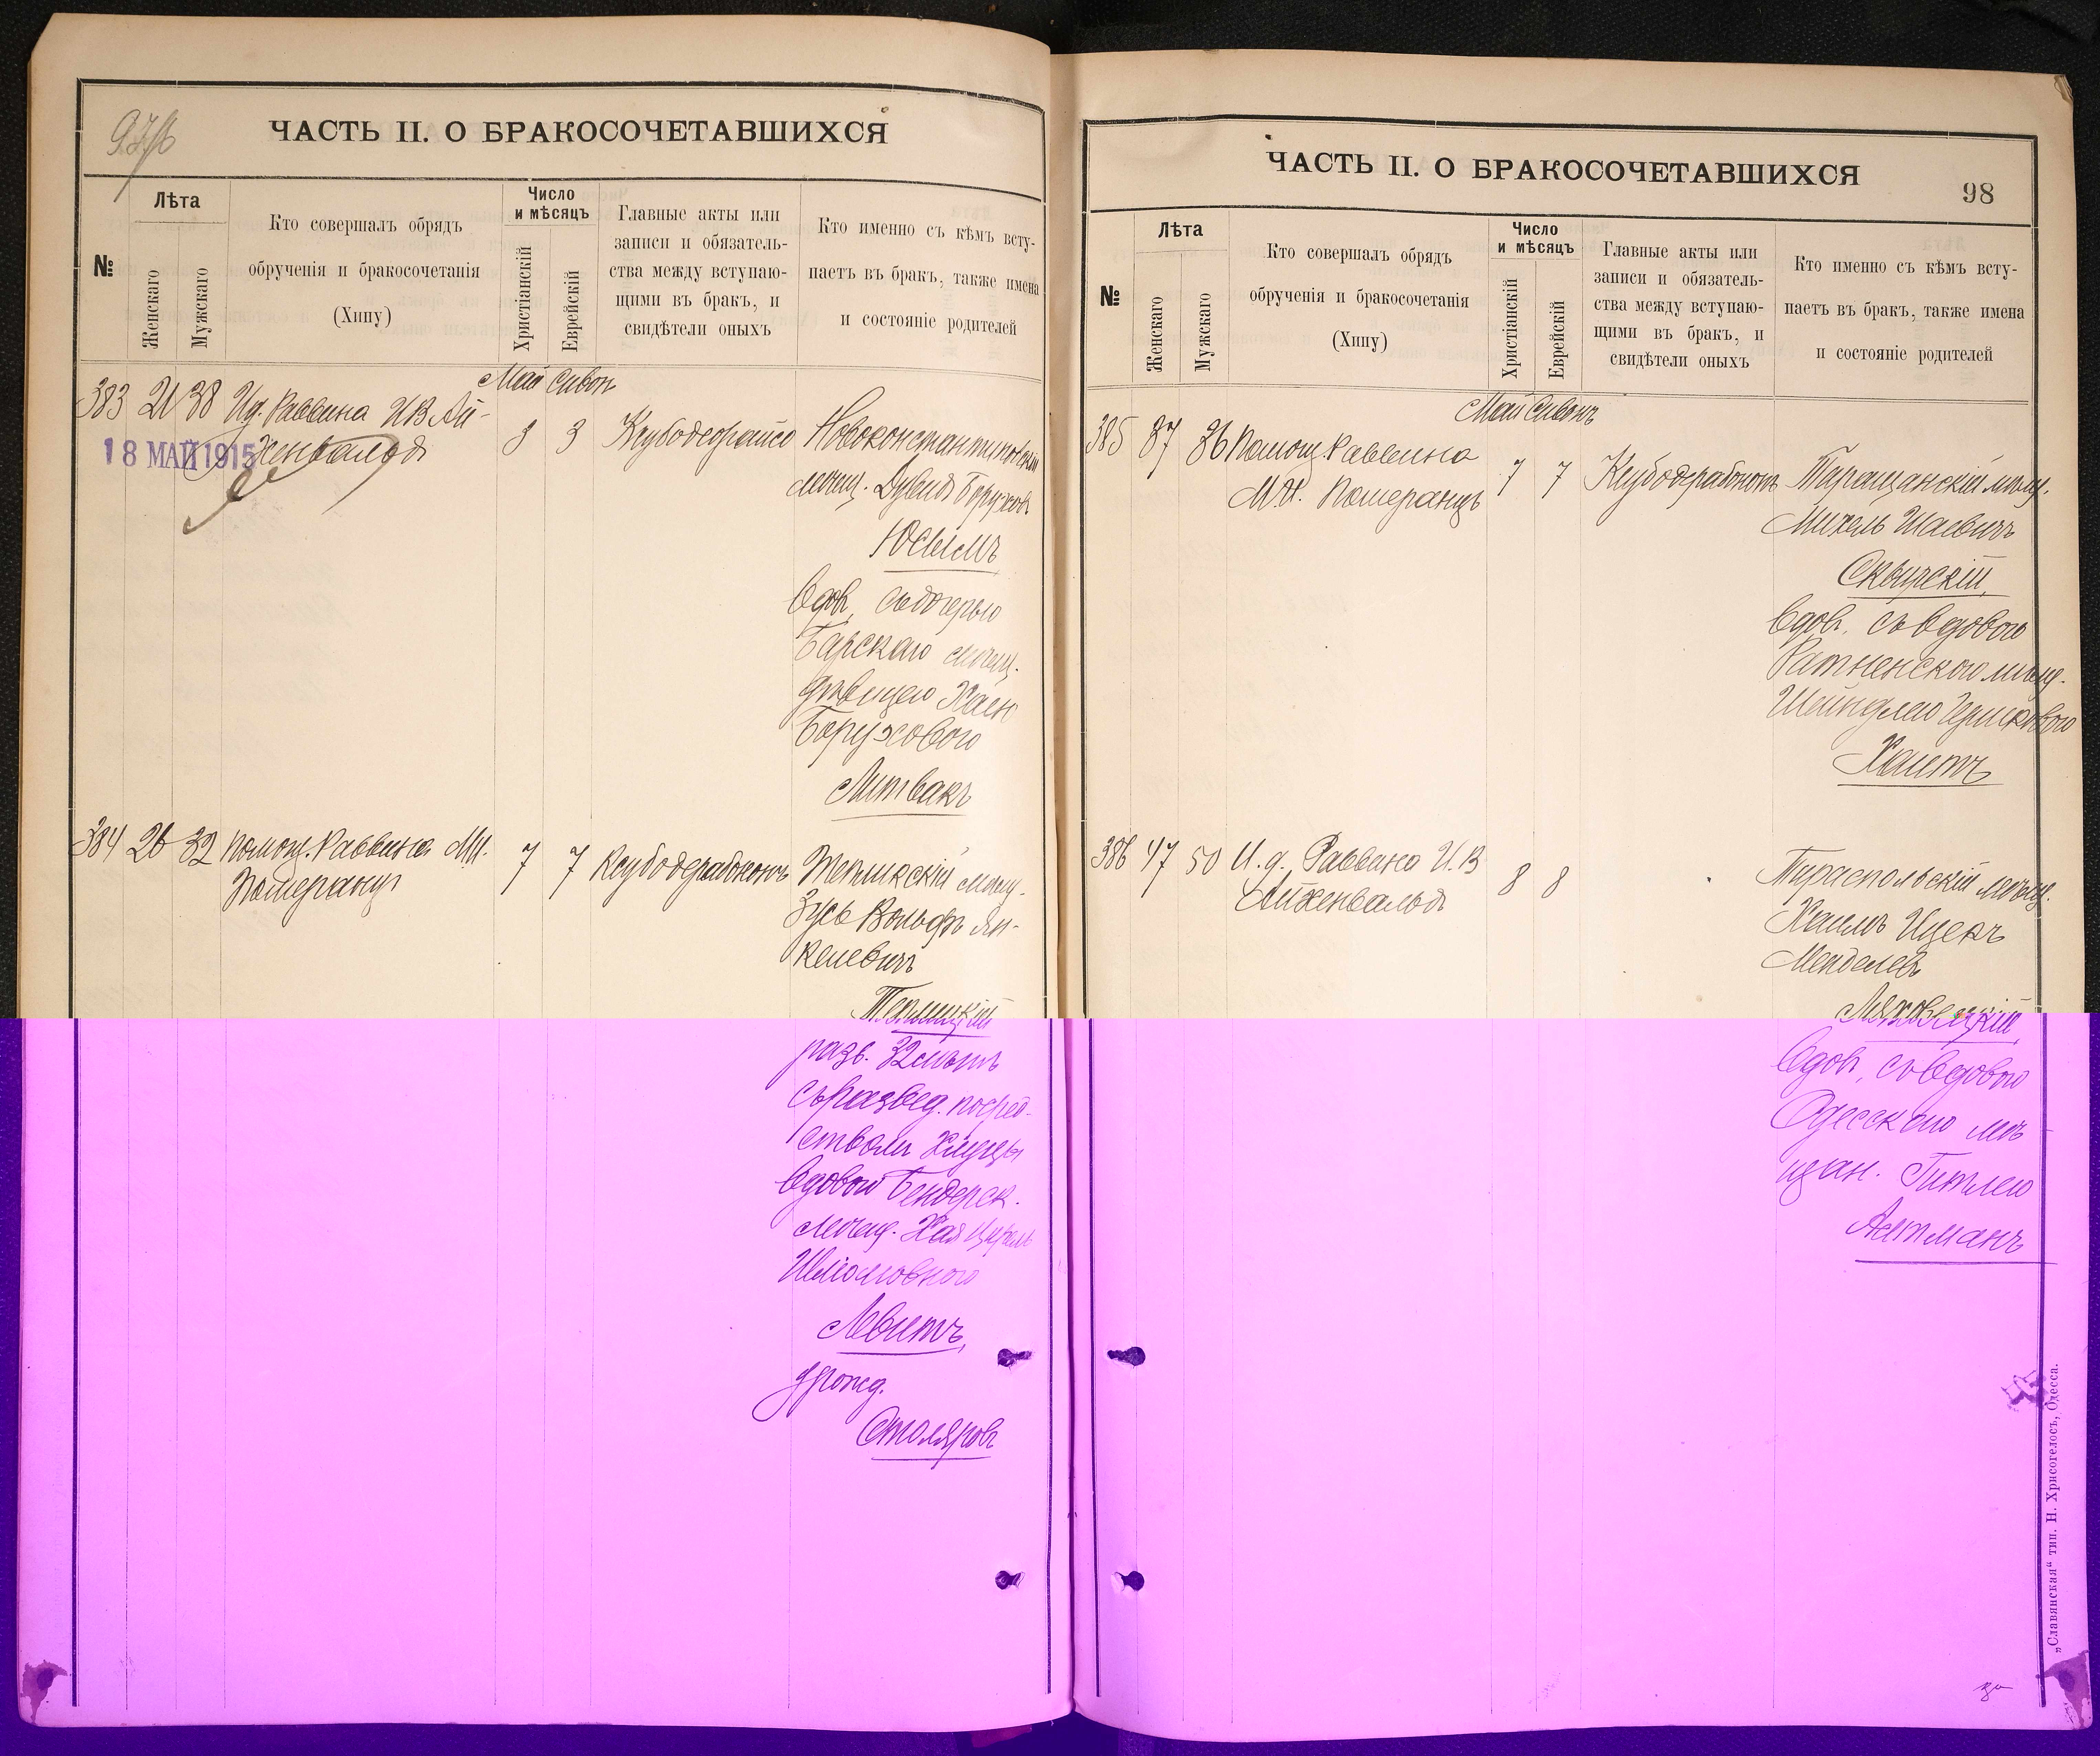 ЧАСТЬ II. О БРАКОСОЧЕТАВШИХСЯ
№
Лѣта
Женскаго
Мужскаго
Кто совершалъ обрядъ
обрученія и бракосочетанія
(Хипу)
Число
и мѣсяцъ
Христіанскій
Еврейскій
Главные акты или
записи и обязатель-
ства между вступаю-
щими въ бракъ, и
свидѣтели оныхъ
Кто именно съ кѣмъ всту-
паетъ въ бракъ, также имена
и состояніе родителей
Май Сивон
383 21 38 И.д. Раввина И.В. Ай-
хенвальд
18 МАЙ 1915
3 3
Новоконстантиновскій
мѣщ. Дувид Борухов
Юсимъ
вдов, съ дочерью
Барскаго мѣщ.
дѣвицею Хаею
Боруховою
Литвакъ
384 26 32 Помощ. Раввина М.И.
Померанц
7 7
Тепликскій мѣщ.
Зусь Вольфъ Ян-
келевичъ
Теплицкій
разв. 32 лѣтъ
съ развед. посред-
ством Хлуцы
вдовою Бендерск.
мѣщ. Хая Цирель
Шломовною
Левитъ,
урожд.
Столяровъ
ЧАСТЬ II. О БРАКОСОЧЕТАВШИХСЯ
98
№
Лѣта
Женскаго
Мужскаго
Кто совершалъ обрядъ
обрученія и бракосочетанія
(Хипу)
Число
и мѣсяцъ
Христіанскій
Еврейскій
Главные акты или
записи и обязатель-
ства между вступаю-
щими въ бракъ, и
свидѣтели оныхъ
Кто именно съ кѣмъ всту-
паетъ въ бракъ, также имена
и состояніе родителей
Май Сивонъ
385 37 36 Помощ. Раввина
М.И. Померанцъ
7 7
Таращанскій мѣщ.
Михель Шаевичъ
Сквирскій,
вдов, съ вдовою
Ратненского мѣщ.
Шейндлею Гершковою
Хаитъ
386 47 50 И.д. Раввина И.В
Айхенвальд
8 8
Тираспольскій мѣщ.
Хаимъ Ицекъ
Менделев
Ляховецкій,
вдов, съ вдовою
Одесскою мѣ
щан. Гитлею
Алтманъ
„Славянская“ тип. Н. Хрисогелосъ, Одесса.